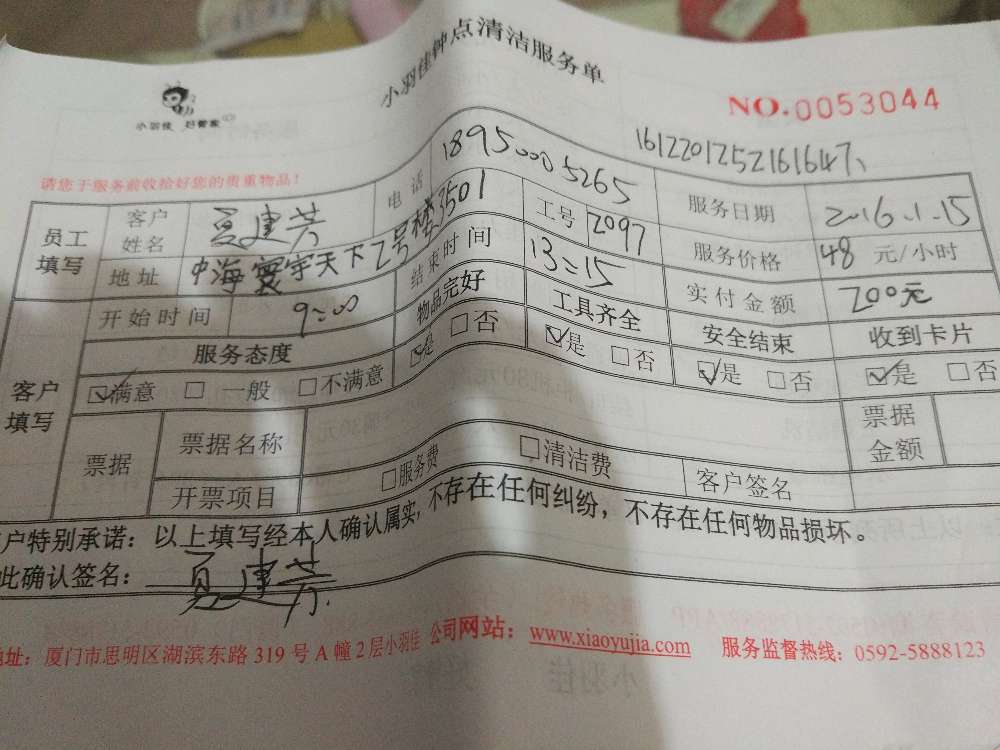 小羽佳钟点清洁服务单
小羽佳 好管家
NO.0053044
1612201252161647
请您于服务前收拾好您的贵重物品!
员工填写 客户姓名 夏建芳 电话 18950005265 服务日期 2016.1.15
地址 中海寰宇天下2号楼3501 工号 2097 服务价格 48 元/小时
开始时间 9:00 结束时间 13:15 实付金额 200元
客户填写 服务态度 物品完好 工具齐全 安全结束 收到卡片
☑满意 □一般 □不满意 ☑是 □否 ☑是 □否 ☑是 □否 ☑是 □否
票据 票据名称 票据金额
开票项目 □服务费 □清洁费 客户签名
户特别承诺:以上填写经本人确认属实,不存在任何纠纷,不存在任何物品损坏。
此确认签名: 夏建芳
地址:厦门市思明区湖滨东路319号A幢2层小羽佳 公司网站:www.xiaoyujia.com 服务监督热线:0592-5888123